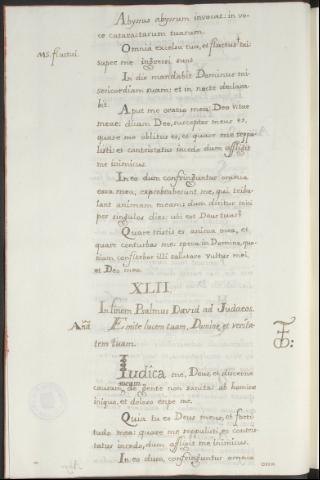 Abyssus abyssum invocat: in vo-
ce cataractarum tuarum.
Omnia excelsa tua, et fluctus tui
MS. fluctui.
super me ingressi sunt.
In die mandabit Dominus mi-
sericordiam suam; et in nocte declara-
bit.
Aput me oratio mea: Deo vitae
meae: dicam Deo, susceptor meus es,
quare me oblitus es, et quare me reppu-
listi: et contristatus incedo dum affligit
me inimicus.
In eo dum confringuntur omnia
ossa mea, exprobraberunt me, qui tribu-
lant animam meam: dum dicitur mihi
per singulos dies: ubi est Deus tuus?
Quare tristis es anima mea, et
quare conturbas me: spera in Domino, quo-
niam confitebor illi salutare vultus mei,
et Deus meus.
XLII.
In finem Psalmus David ad Judaeos.
Emite lucem tuam, Domine, et verita-
tem tuam.
Iudica me, Deus, et discerne
causam meam de gente non sancta: ab homine
iniquo, et doloso eripe me.
Quia tu es Deus meus, et forti-
tudo mea: quare me reppulisti, et contris-
tatus incedo, dum affligit me inimicus.
In eo dum confringuntur omnia